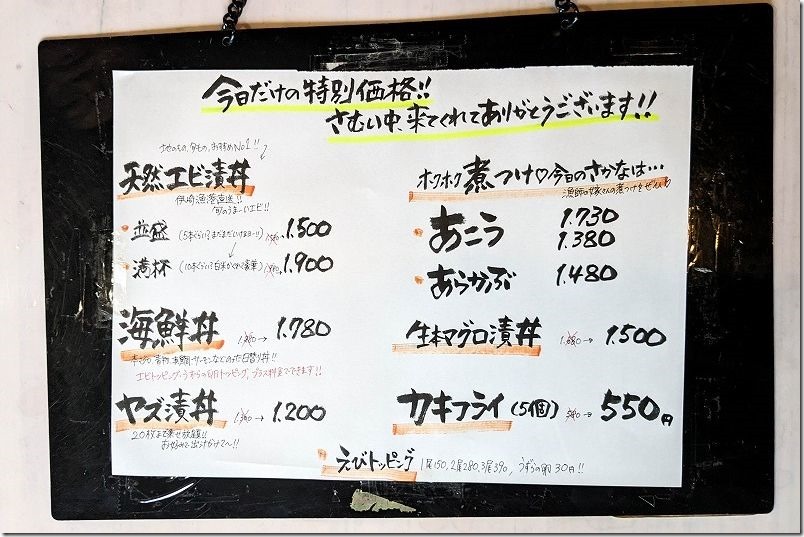 今日だけの特別価格!!
さむい中、来てくれてありがとうございます!!
地のもの、旬もの、おすすめNo1!!
天然エビ漬丼
漁港直送!!
旬のうまーいエビ!!
並盛 (5本ぐらい) 1.500
満杯 (10本ぐらい) 1.900
海鮮丼 → 1.780
本マグロ サーモンなどのった日替り丼!!
エビトッピング、うずらの卵トッピング、プラス料金でできます!!
ヤズ漬丼 → 1.200
20枚まで乗せ放題!!
お好みで出汁かけて〜!!
ホクホク煮つけ♡今日のさかなは…
漁師の嫁さんの煮つけをぜひ
あこう 1.730
1.380
あらかぶ 1.480
生本マグロ漬丼 → 1.500
カキフライ (5個) → 550円
えびトッピング 1尾150、2尾280、3尾390、うずらの卵30円!!